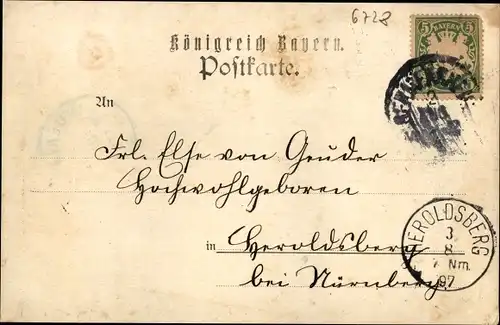 6728
5 BAYERN 5
Königreich Bayern.
Postkarte.
An
Frl. Else von Geuder
Hochwohlgeboren
in Heroldsberg
bei Nürnberg.
HEROLDSBERG
3
8
7 Nm.
97